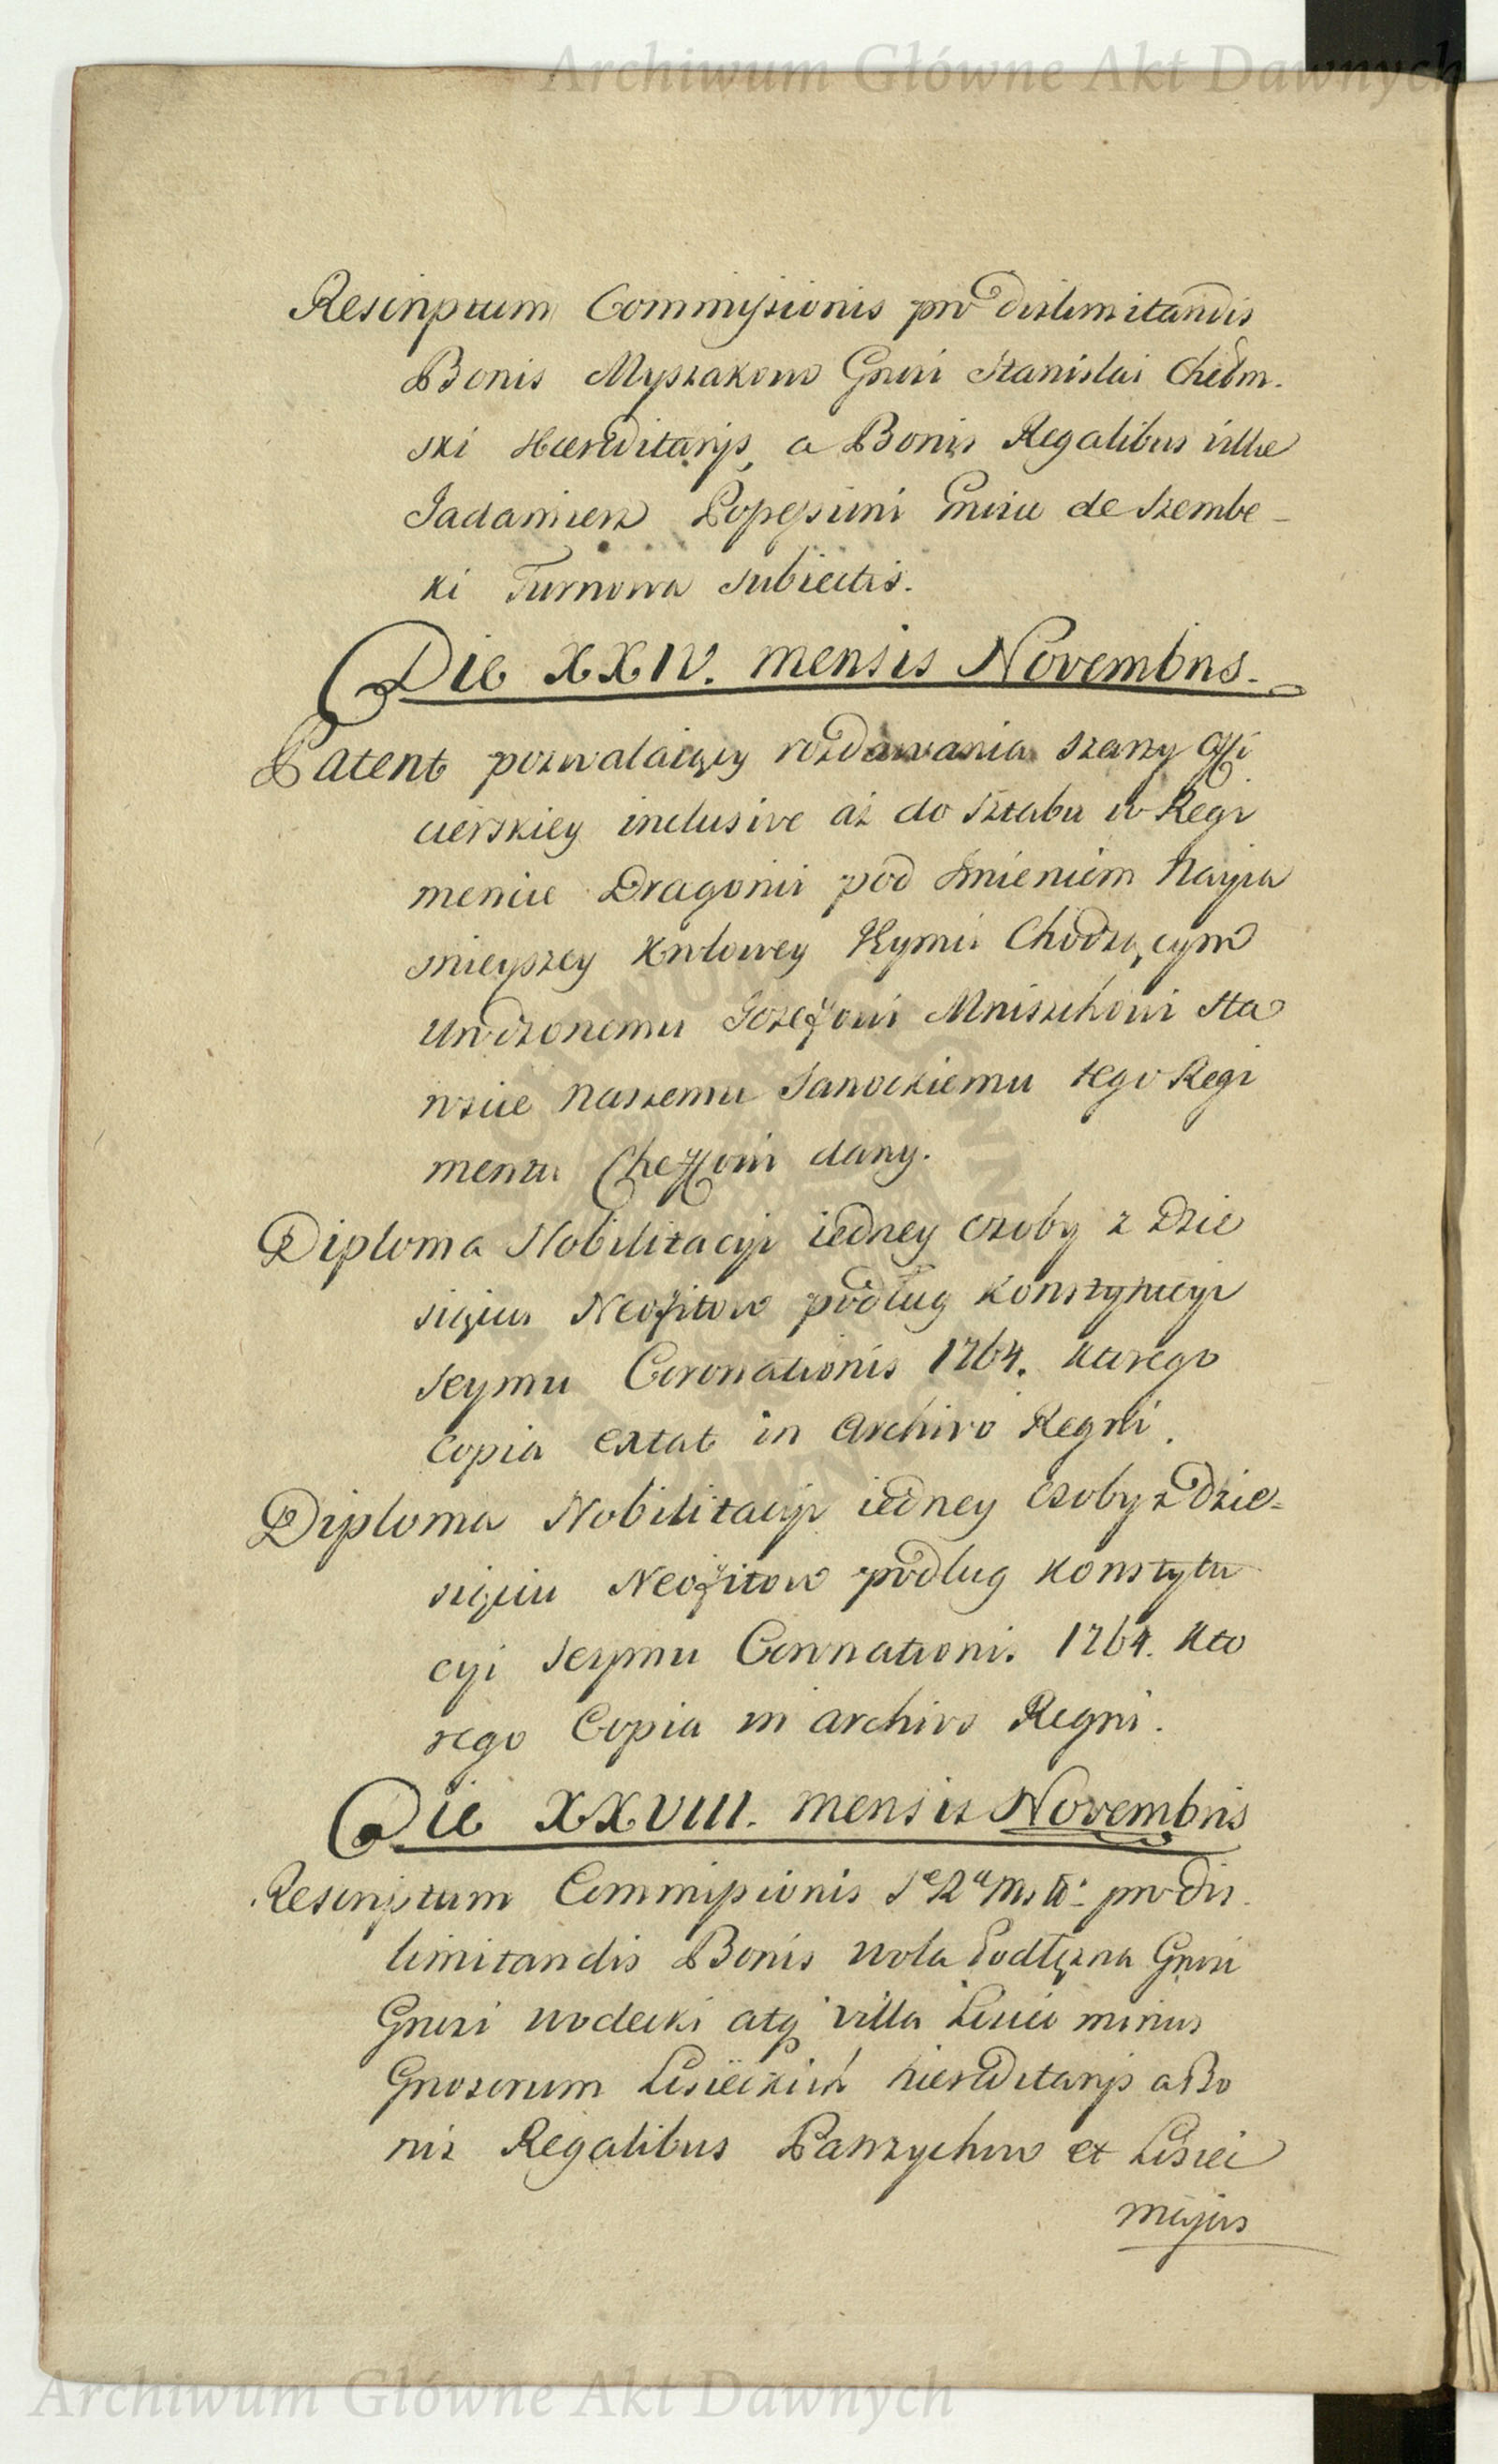 Archiwum Główne Akt Dawnych
Rescriptum Commissionis pro dislimitandis
Bonis Myszakow Gnosi Stanislai Chełm-
ski Haereditarijs, a Bonis Regalibus villae
Jadamierz Possessioni Gnosae de Szembe-
ki Turnowa subiectis.
Die XXIV. mensis Novembris.
Patent pozwalaiący rozdawania szarzy Offi
cierskiey inclusive aż do Sztabu w Regi
mencie Dragonii pod Jmieniem Nayia
snieyszey Krolowey Chodzącym
Urodzonemu Jozefowi Mniszchowi Sta
roscie Naszemu Sanockiemu tego Regi
mentu Cheffowi dany.
Diploma Nobilitacyi iedney Osoby z Dzie
siąciu Neofitow podług Konstytucyi
Seymu Coronationis 1764. ktorego
Copia extat in Archivo Regni.
Diploma Nobilitacyi iedney Osoby z Dzie=
siąciu Neofitow podlug Konstytu
cyi Seymu Coronationis 1764. Kto
rego Copia in archivo Regni.
Die XXVIII. mensis Novembris
Rescriptum Commissionis pro dis
limitandis Bonis Wola Podłężna Gnosi
Gnosi Wodecki atq villa Lisiec minus
Gnosorum Lisieckich hiereditarijs a Bo
nis Regalibus Patrzychow et Lisiec
majus
Archiwum Główne Akt Dawnych